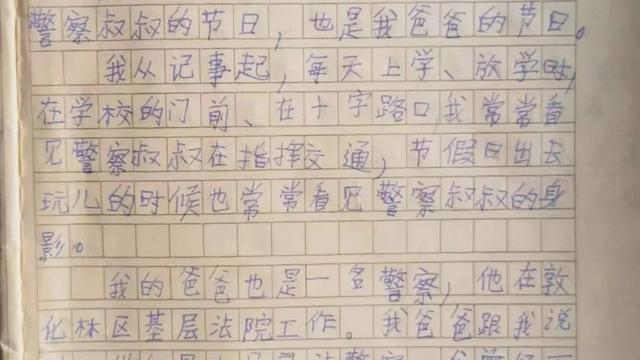 警察叔叔的节日，也是我爸爸的节日。
我从记事起，每天上学、放学时，
在学校的门前、在十字路口，我常常看
见警察叔叔在指挥交通，节假日出去
玩儿的时候也常常看见警察叔叔的身
影。
我的爸爸也是一名警察，他在敦
化林区基层法院工作。我爸爸跟我说